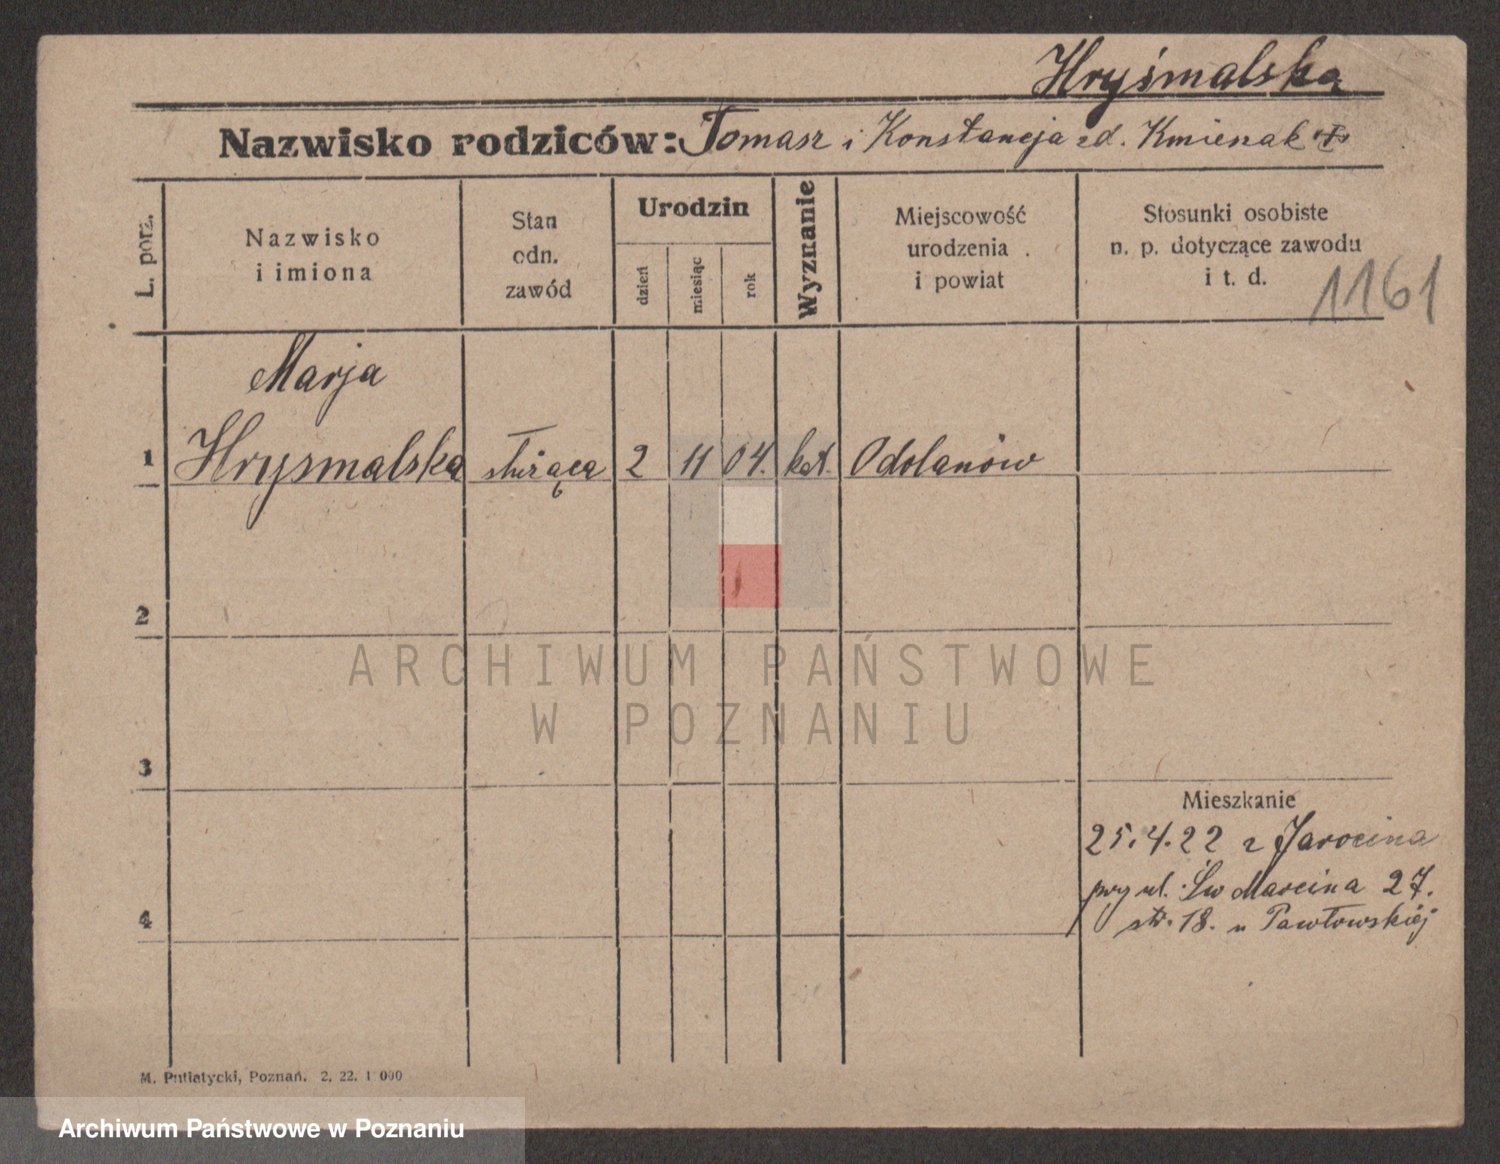 Hryśmalska
Nazwisko rodziców: Tomasz i Konstancja zd. Kmieszak
L. porz.
Nazwisko
i imiona
Stan
odn.
zawód
Urodzin
dzień
miesiąc
rok
Wyznanie
Miejscowość
urodzenia
i powiat
Stosunki osobiste
n. p. dotyczące zawodu
i t. d.
1161
Marja
1 Hrysmalska służąca 2 11 04. kat. Odolanów
2
ARCHIWUM PAŃSTWOWE
W POZNANIU
3
Mieszkanie
25.4.22 z Jarocina
przy ul. Św Marcina 27.
4
str. 18. u Pawłowskiej
M. Putiatycki, Poznań. 2. 22. 1 000
Archiwum Państwowe w Poznaniu